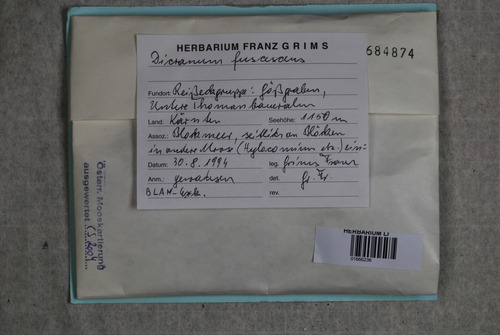 HERBARIUM FRANZ GRIMS
684874
Dicranum fuscescens
Fundort: Reißeckgruppe: Gößgraben,
Untere Thomanbaueralm
Land: Kärnten Seehöhe: 1150 m
Assoz.: Blockmeer, seitlich an Blöcken
in andere Moose (Hylocomium etc.) ein=
Datum: 30.8.1994 leg. Grims Franz
Anm.: gewachsen det. Gr. Fr.
BLAM-Exk. rev.
Österr. Mooskartierung
ausgewertet
HERBARIUM LI